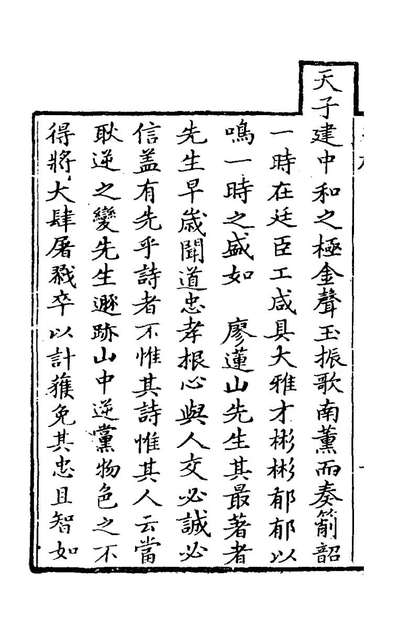 天子建中和之極金聲玉振歌南薰而奏箾韶
一時在廷臣工咸具大雅才彬彬郁郁以
鳴一時之盛如　廖蓮山先生其最著者
先生早歲聞道忠孝根心與人交必誠必
信蓋有先乎詩者不惟其詩惟其人云當
耿逆之變先生遯跡山中逆黨物色之不
得將大肆屠戮卒以計獲免其忠且智如